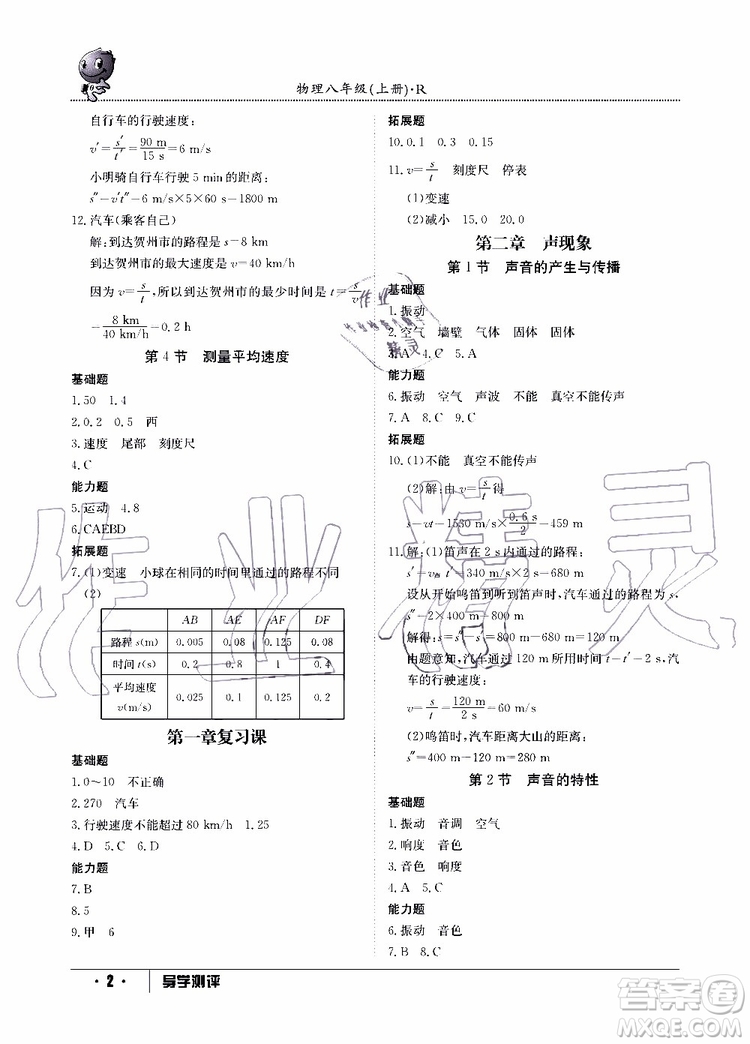 物理八年级(上册)·R
自行车的行驶速度:
v′=s′/t′=90 m/15 s=6 m/s
小明骑自行车行驶 5 min 的距离:
s″=v′t″=6 m/s×5×60 s=1800 m
12.汽车(乘客自己)
解:到达贺州市的路程是 s=8 km
到达贺州市的最大速度是 v=40 km/h
因为 v=s/t,所以到达贺州市的最少时间是 t=s/v
=8 km/40 km/h=0.2 h
第 4 节 测量平均速度
基础题
1.50 1.4
2.0.2 0.5 西
3.速度 尾部 刻度尺
4.C
能力题
5.运动 4.8
6.CAEBD
拓展题
7.(1)变速 小球在相同的时间里通过的路程不同
(2)
AB AE AF DF
路程 s(m) 0.005 0.08 0.125 0.08
时间 t(s) 0.2 0.8 1 0.4
平均速度 v(m/s) 0.025 0.1 0.125 0.2
第一章复习课
基础题
1.0～10 不正确
2.270 汽车
3.行驶速度不能超过 80 km/h 1.25
4.D 5.C 6.D
能力题
7.B
8.5
9.甲 6
拓展题
10.0.1 0.3 0.15
11.v=s/t 刻度尺 停表
(1)变速
(2)减小 15.0 20.0
第二章 声现象
第 1 节 声音的产生与传播
基础题
1.振动
2.空气 墙壁 气体 固体 固体
3.A 4.C 5.A
能力题
6.振动 空气 声波 不能 真空不能传声
7.A 8.C 9.C
拓展题
10.(1)不能 真空不能传声
(2)解:由 v=s/t得
s=vt=1530 m/s×0.6 s/2=459 m
11.解:(1)笛声在 2 s 内通过的路程:
s′=v′t′=340 m/s×2 s=680 m
设从开始鸣笛到听到笛声,汽车通过的路程为 s,
s″=2×400 m=800 m
解得:s=s″-s′=800 m-680 m=120 m
由题意知,汽车通过 120 m 所用时间 t=t′=2 s,汽
车的行驶速度:
v=s/t=120 m/2 s=60 m/s
(2)鸣笛时,汽车距离大山的距离:
s″=400 m-s=400 m-120 m=280 m
第 2 节 声音的特性
基础题
1.振动 音调 空气
2.响度 音色
3.音色 响度
4.A 5.C
能力题
6.振动 音调 音色
7.C 8.C 9.A
· 2 · 导学测评
作业精灵
答案圈
MXQE.COM